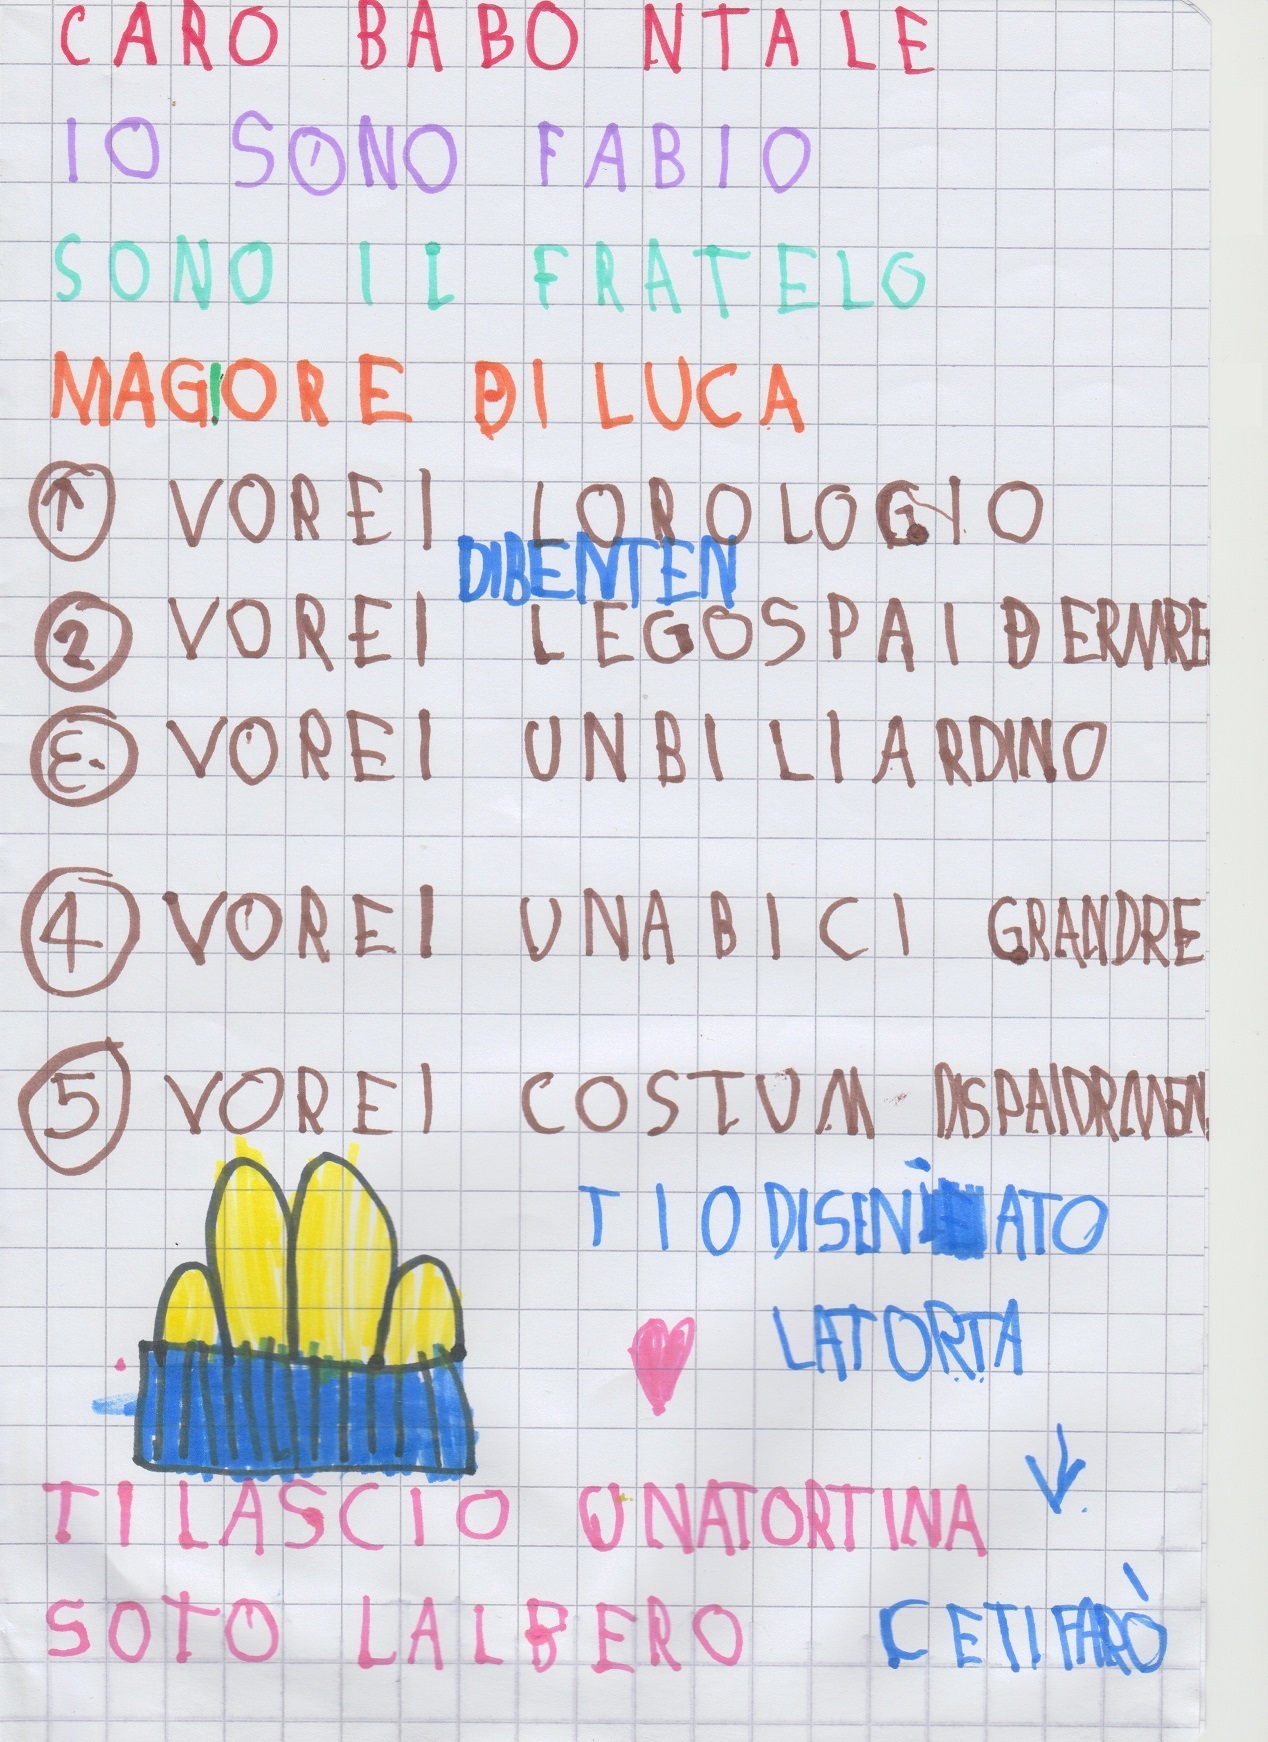 CARO BABO NTALE
IO SONO FABIO
SONO IL FRATELO
MAGIORE DI LUCA
1 VOREI LOROLOGIO
DIBENTEN
2 VOREI LEGOSPAIDERMRE
3 VOREI UNBILIARDINO
4 VOREI UNABICI GRANDRE
5 VOREI COSTUM DISPAIDRMEN
TIO DISENIATO
LATORTA
TI LASCIO UNATORTINA
SOTO LALBERO
CETIFARÒ